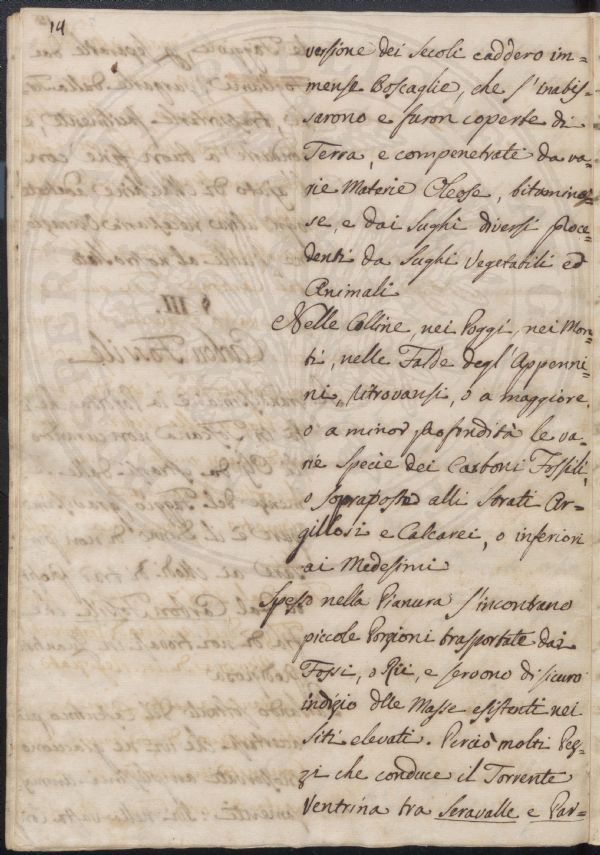 14
versione dei Secoli caddero im=
mense Boscaglie, che s'inabis=
sarono e furon coperte di
Terra, e compenetrate da va=
rie Materie Oleose, bitumino=
se, e dai Sughi diversi proce=
denti da Sughi Vegetabili ed
Animali
Nelle Colline, nei Poggi, nei Mon=
ti, nelle Falde degl'Appenni=
ni, ritrovansi, o a maggiore,
o a minor profondità le va=
rie Specie dei Carboni Fossili,
o sopraposte alli Strati Ar=
gillosi e Calcarei, o inferiori
ai Medesimi
Spesso nella Pianura s'incontrano
piccole Porzioni trasportate dai
Fossi, o Rii, e servono di sicuro
indizio dlle Masse esistenti nei
Siti elevati. Perciò molti Pez=
zi che conduce il Torrente
Ventrina tra Seravalle e Par=